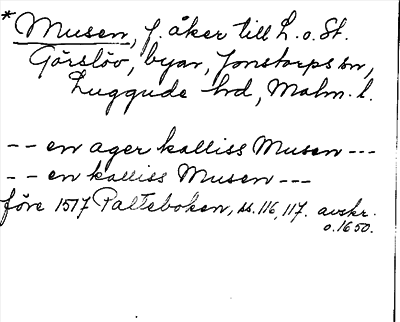 * Musen, f. åker till L. o. St.
Görslöv, byar, Jonstorps sn,
Luggude hd, Malm. l.
-- en ager kalliss Musen ---
-- en kalliss Musen ---
före 1517 Palteboken, ss. 116, 117. avskr.
o. 1650.